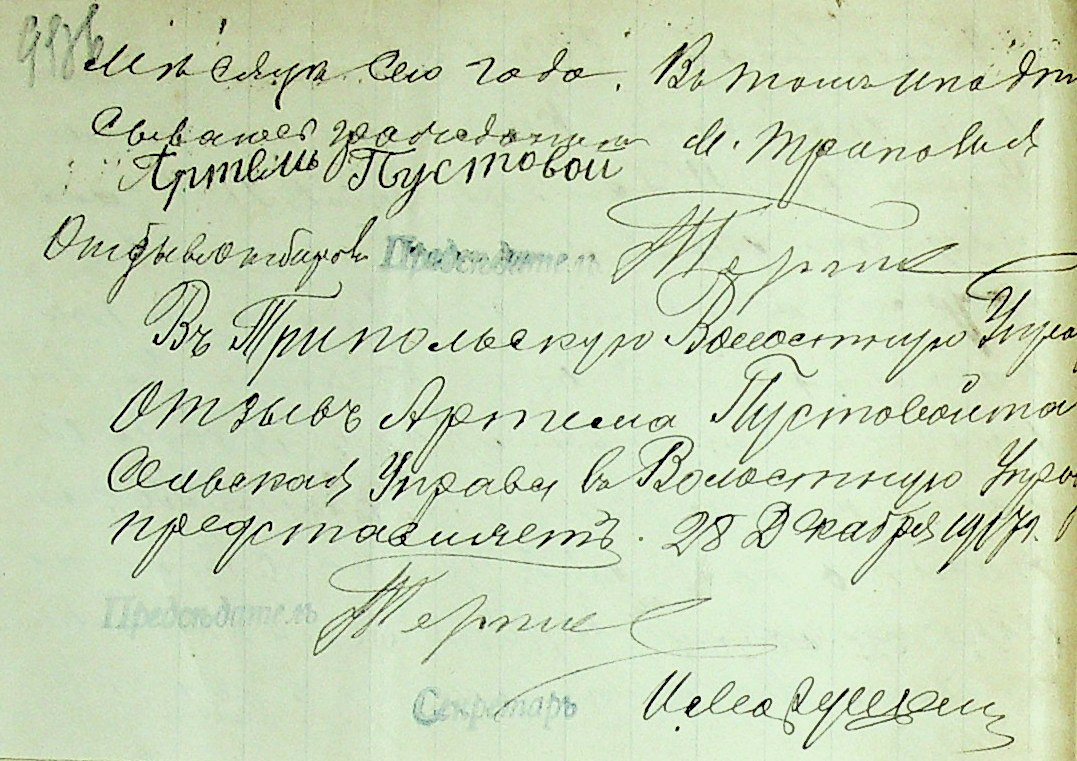 мѣсяца сего года. Въ томъ и подпи
сываюсь гражданинъ м. Триполья
Артемъ Пустовой
Отзывъ отбиралъ Предсѣдатель Терпил
Въ Трипольскую Волостную Управу
Отзывъ Артема Пустовойта
Сельская Управа въ Волостную Управу
представляетъ. 28 Декабря 1917 г.
Предсѣдатель Терпил
Секретарь